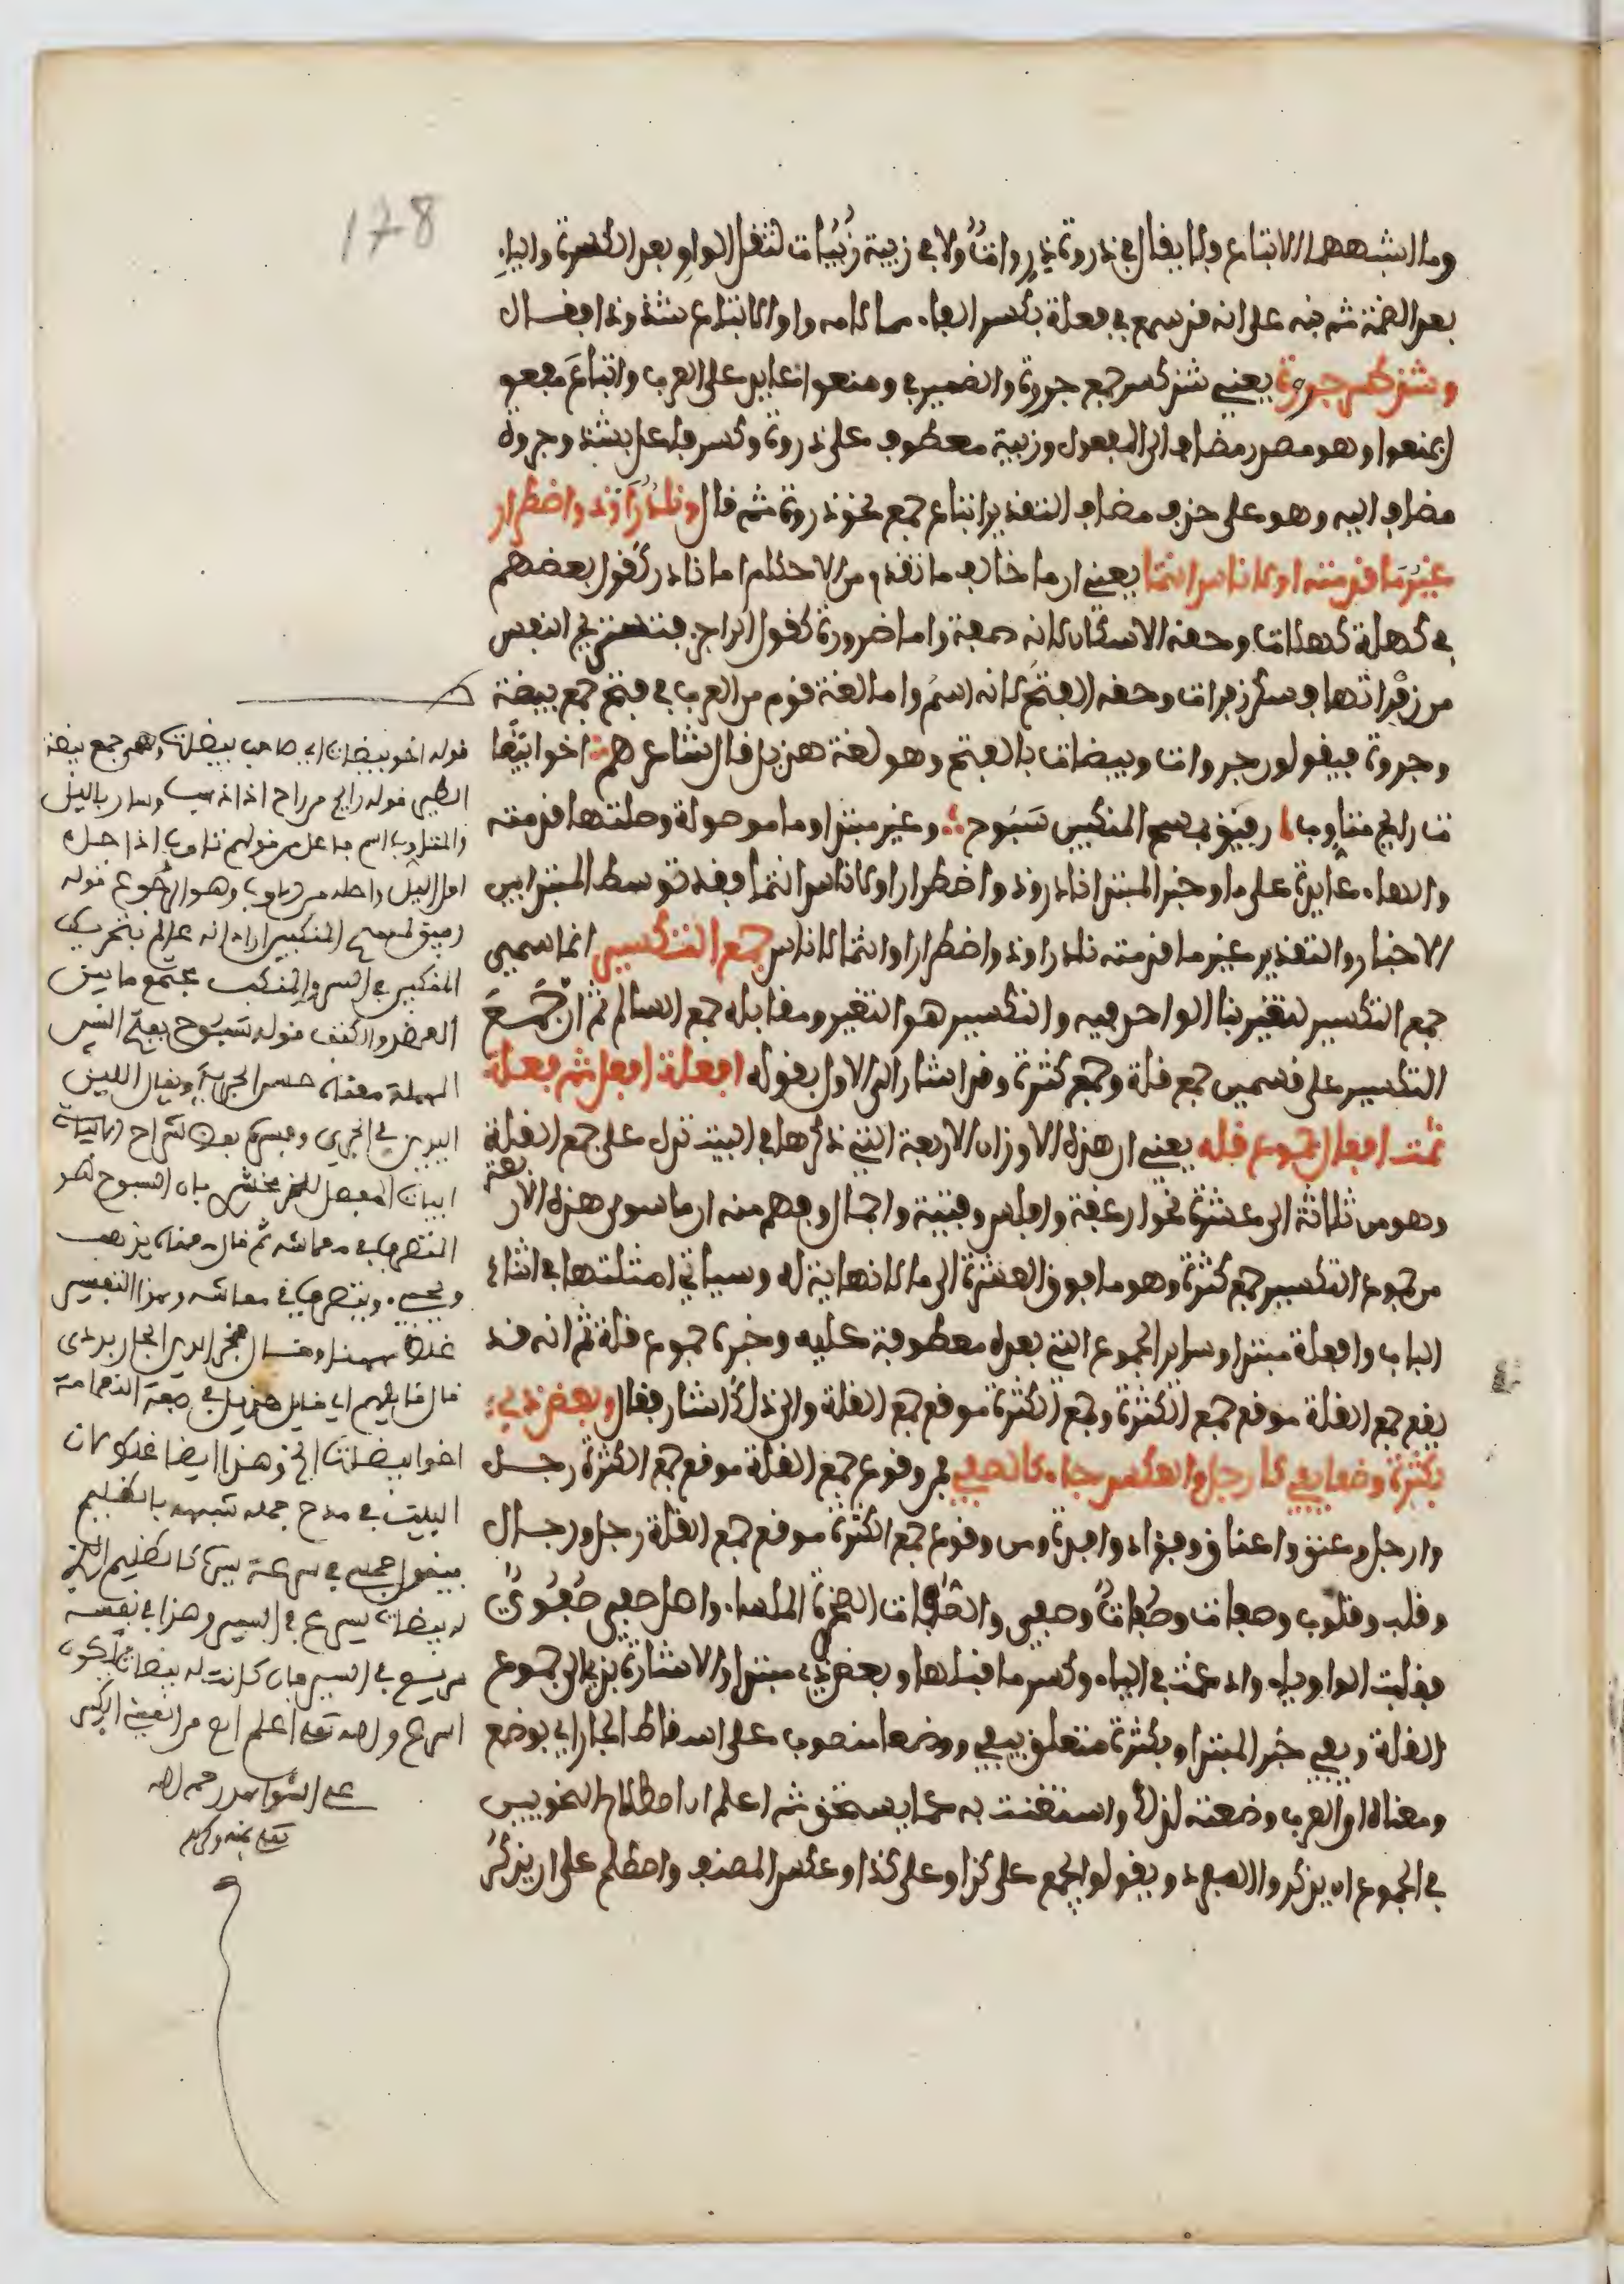 178
وما اشبههما الاتباع ولا يقال في ذروة ذروات ولا في زبية زبيات لثقل الواو بعد الكسرة والياء
بعد الضمة ثم نبه على انه قد سمع في فعلة بكسر الفاء مما لامه واو الاتباع شذوذا فقال
وشذ كسر جروة يعني شذ كسر جمع جروة والضمير في ومنعوا عايد على العرب واتباع مفعو
ل بمنعوا وهو مصدر مضاف الى المفعول وزبية معطوف على ذروة وكسر فاعل بشذ وجروة
مضاف اليه وهو على حذف مضاف التقدير اتباع جمع نحو ذروة ثم قال ونادر او ذو اضطرار
غير ما قدمته او لاناس انتما يعني ان ما خالف ما تقدم من الاحكام اما نادر كقول بعضهم
في كهلة كهلات وحقه الاسكان لانه صفة واما ضرورة كقول الراجز فتستريح النفس
من زفراتها فسكن زفرات وحقه الفتح لانه اسم واما لغة قوم من العرب في فتح جمع بيضة
وجروة فيقولون جروات وبيضات بالفتح وهو لغة هذيل قال شاعرهم اخو بيضا
ت رايح متاوب رفيق بمسح المنكبين سبوح وغير مبتدا وما موصولة وصلتها قدمته
والهاء عايدة على ما وخبر المبتدا نادر وذو اضطرار او لاناس انتما فقد توسط المبتدا بين
الاخبار والتقدير غير ما قدمته نادر او ذو اضطرار او انتما لاناس جمع التكسير انما سمي
جمع التكسير لتغير بنا الواحد فيه والتكسير هو التغير ومقابله جمع السالم ثم ان جمع
التكسير على قسمين جمع قلة وجمع كثرة وقد اشار الى الاول بقوله افعلة افعل ثم فعلة
ثمت افعال جموع قله يعني ان هذه الاوزان الاربعة التي ذكرها في البيت تدل على جمع القلة
وهو من ثلاثة الى عشرة نحو ارغفة وافلس وفتية واجمال وفهم منه ان ما سوى هذه الاربعة
من جموع التكسير جمع كثرة وهو ما فوق العشرة الى ما لا نهاية له وسياتي امثلتها في اثناء
الباب وافعلة مبتدا وساير الجموع التي بعده معطوفة عليه وخبره جموع قلة ثم انه قد
يقع جمع القلة موقع جمع الكثرة وجمع الكثرة موقع جمع القلة والى ذلك اشار فقال وبعض ذي
بكثرة وضعا يفي كارجل والعكس جاء كالصفي فمن وقوع جمع القلة موقع جمع الكثرة رجل
وارجل وعنق واعناق وفؤاد وافئدة ومن وقوع جمع الكثرة موقع جمع القلة رجل ورجال
وقلب وقلوب وصفات وصفات وصفي والصفات الصخرة الملساء واصل صفي صفوي
فقلبت الواو ياء وادغمت في الياء وكسر ما قبلها وبعض ذي مبتدا والاشارة بذي الى جموع
القلة ويفي خبر المبتدا وبكثرة متعلق بيفي ووضعا منصوب على اسقاط الجار اي بوضع
ومعناه ان العرب وضعته لذلك واستغنت به عما يستحق ثم اعلم ان اصطلاح النحويين
في الجموع ان يذكروا المفرد ويقولوا يجمع على كذا وعلى كذا وعكس المصنف واصطلح على ان يذكر
قوله اخو بيضات اي صاحب بيضات وهي جمع بيضة
الطير قوله رايح من راح اذا ذهب وسار بالليل
والمتاوب اسم فاعل من قولهم تاوب اذا جاء
اول الليل واصله من وهو الرجوع قوله
رفيق بمسح المنكبين اراد انه عالم بتحريك
المنكبين في السير والمنكب مجتمع ما بين
العضد والكتف قوله سبوح بفتح السين
المهملة معناه حسن الجري ويقال اللين
اليدين في الجري وفسره بعض شراح ابيات
ابيات المفصل للزمخشري بان السبوح هو
المتصرف في معاشه ثم قال معناه يذهب
ويجيء ويتصرف في معاشه وهذا التفسير
غلط وقال فخر الدين الجاربردي
قال قايلهم اي قايل هذيل في صفة النعامة
اخو بيضات الخ وهذا ايضا غلط لان
البيت في مدح جمله شبهه بالظليم
فيقول جملي في سرعة سيره كالظليم الذي
له بيضات يسرع في السير وهذا في نفسه
سريع في السير فان كانت له بيضات يكون
اسرع والله تعالى اعلم اهـ من العيني الكبير
على الشواهد رحمه الله
تعالى بمنه وكرمه